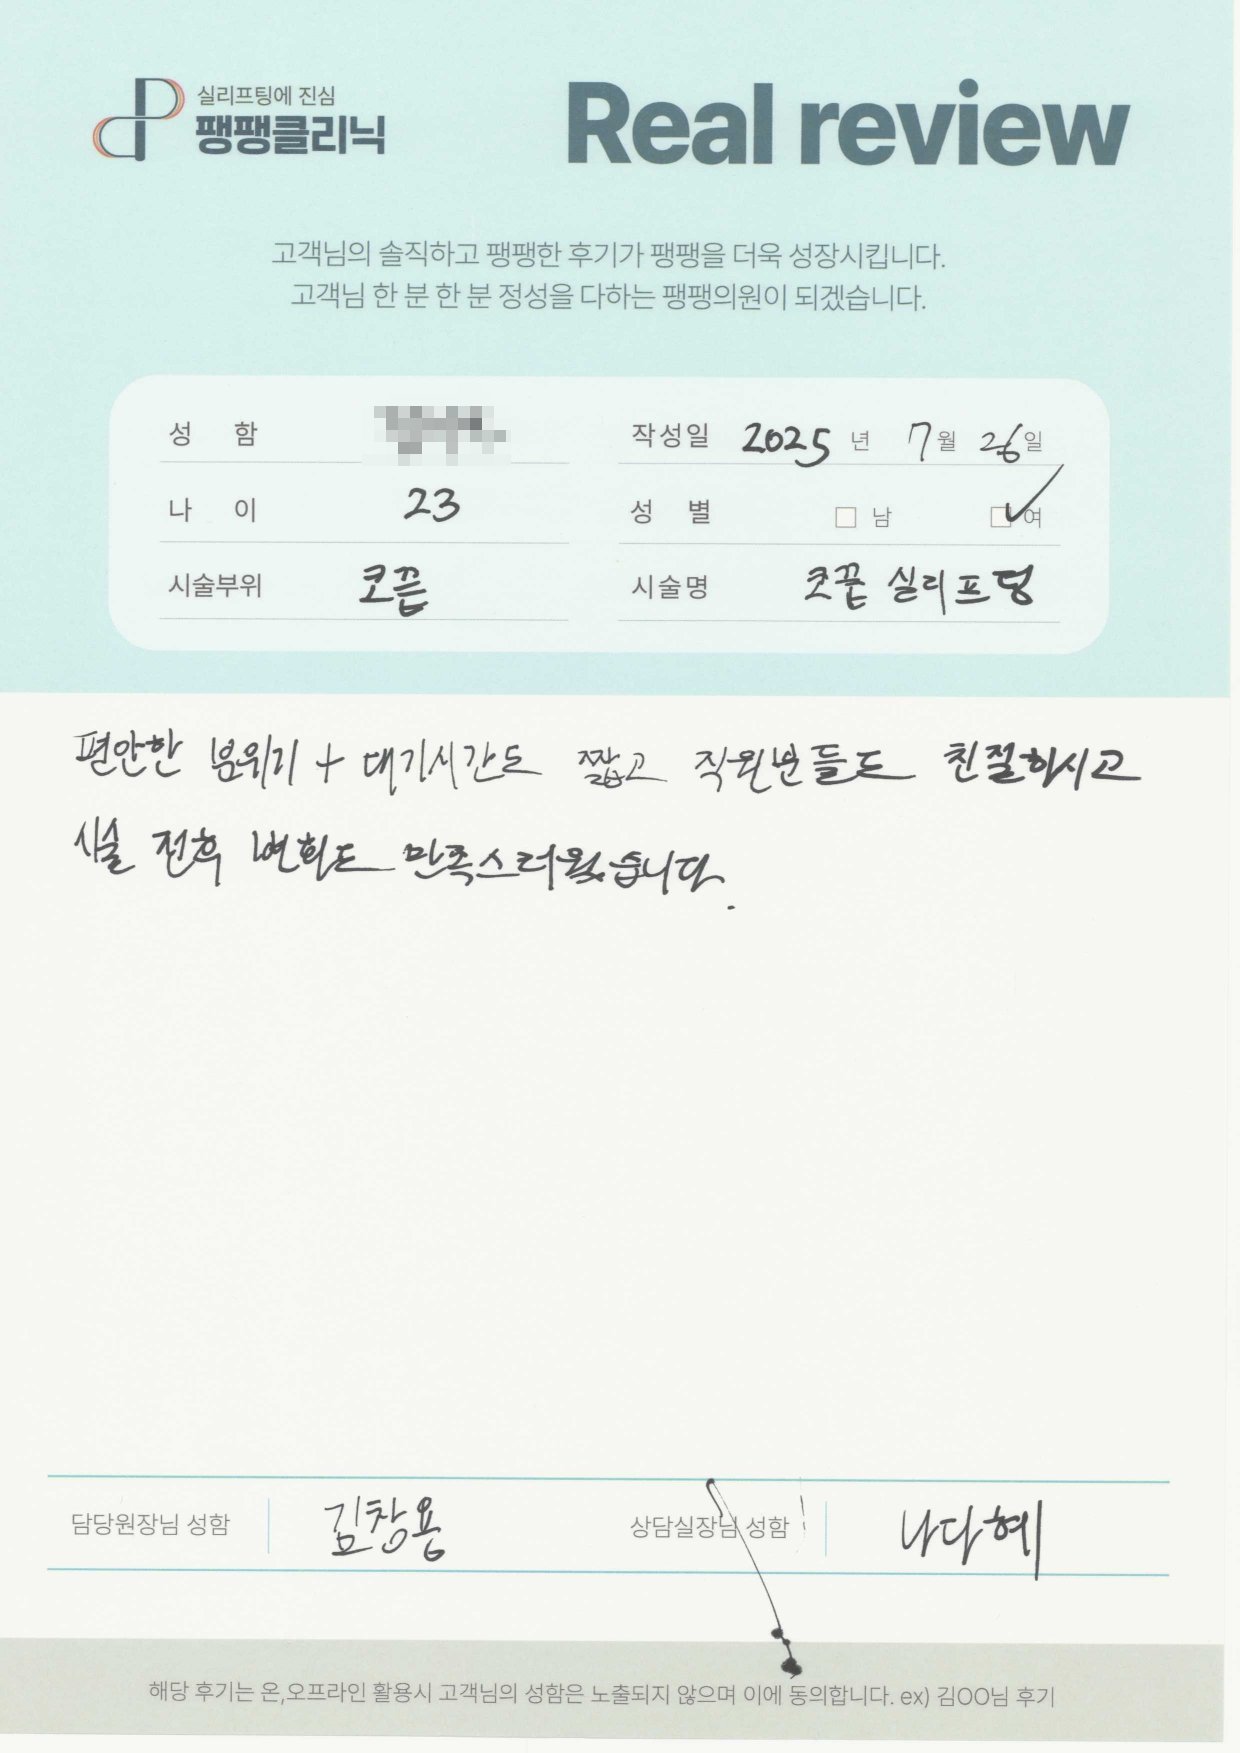 실리프팅에 진심
팽팽클리닉
Real review
고객님의 솔직하고 팽팽한 후기가 팽팽을 더욱 성장시킵니다.
고객님 한 분 한 분 정성을 다하는 팽팽의원이 되겠습니다.
성 함 작성일 2025 년 7 월 26 일
나 이 23 성 별 남 여
시술부위 코끝 시술명 코끝 실리프팅
편안한 분위기 + 대기시간도 짧고 직원분들도 친절하시고
시술 전후 변화도 만족스러웠습니다.
담당원장님 성함 김창용 상담실장님 성함 나다혜
해당 후기는 온,오프라인 활용시 고객님의 성함은 노출되지 않으며 이에 동의합니다. ex) 김OO님 후기